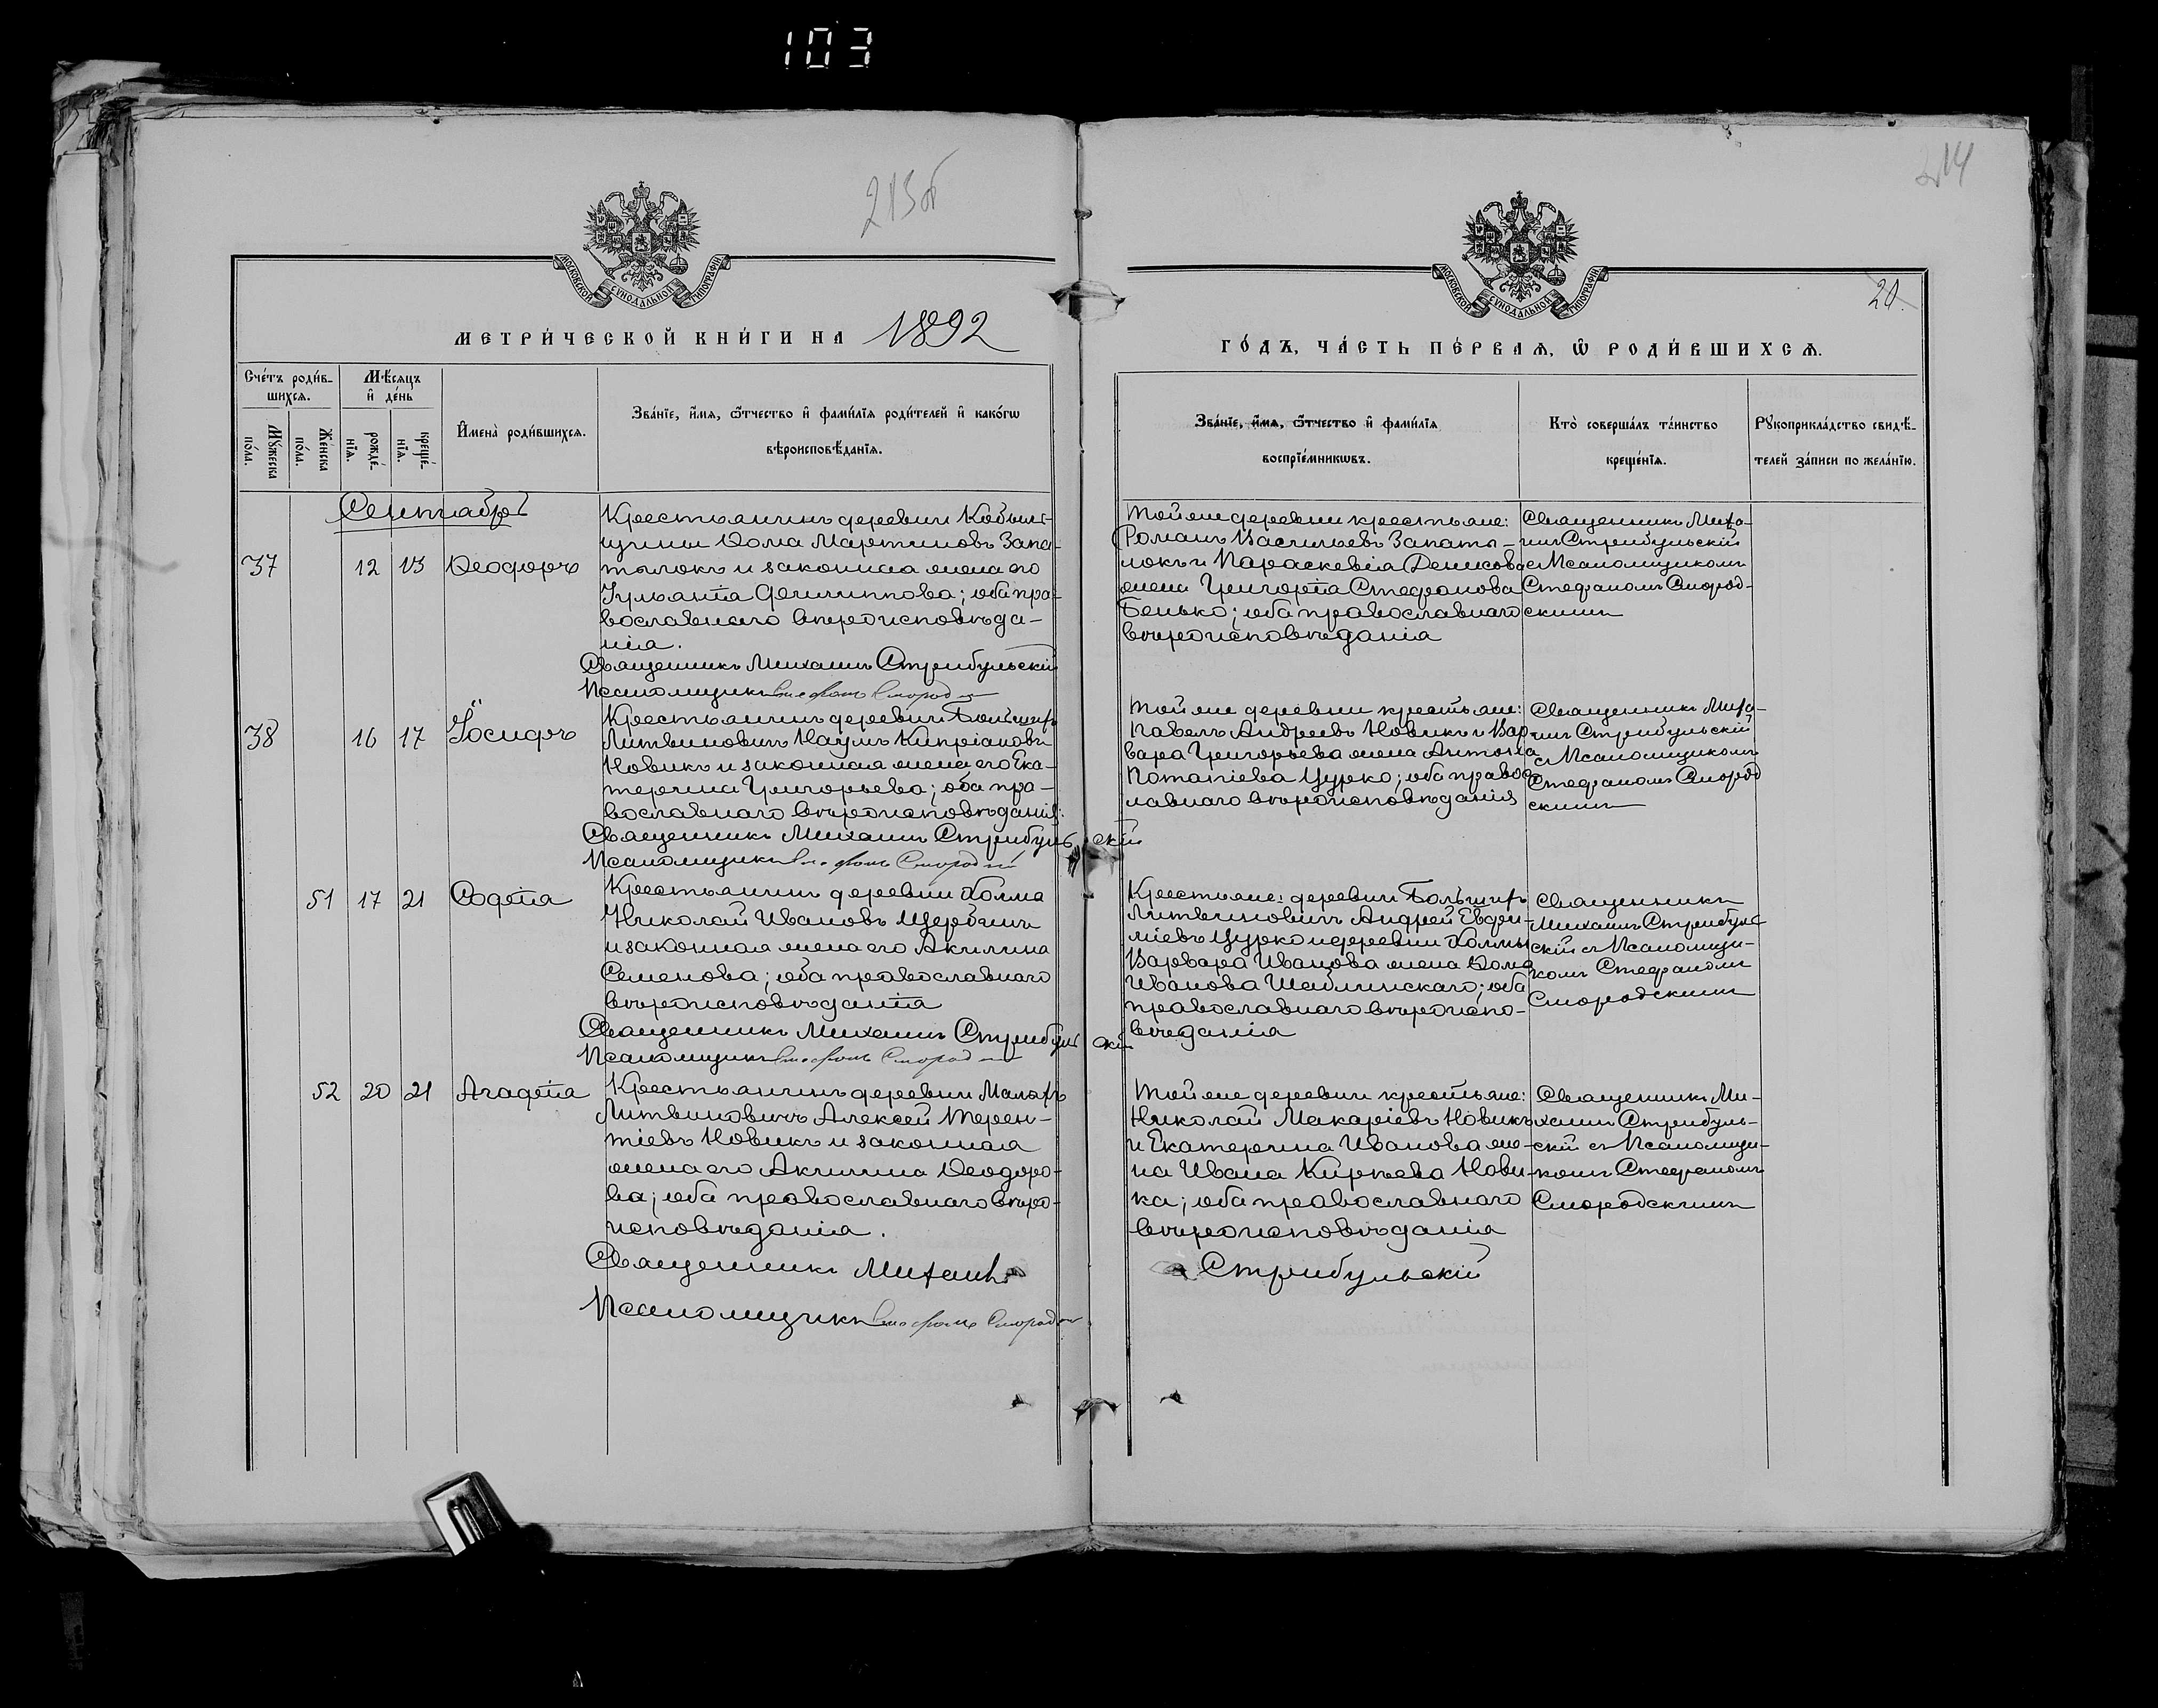 103
213об
214
МОСКОВСКОЙ СѴНОДАЛЬНОЙ ТИПОГРАФІИ
МОСКОВСКОЙ СѴНОДАЛЬНОЙ ТИПОГРАФІИ
20
МЕТРИ́ЧЕСКОЙ КНИ́ГИ НА 1892
ГО́ДЪ, ЧА́СТЬ ПЕ́РВАѦ, Ѿ РОДИ́ВШИХСѦ.
Сче́тъ роди́в-
шихсѧ.
Мꙋ́жеска
по́ла.
Же́нска
по́ла.
Мѣ́сѧцъ
и҆ де́нь
рожде́-
нїѧ.
креще́-
нїѧ.
И҆мена̀ роди́вшихсѧ.
Зва́нїе, и҆́мѧ, ѻ҆́тчество и҆ фами́лїѧ роди́телей и҆ како́гѡ
вѣроисповѣ́данїѧ.
Зва́нїе, и҆́мѧ, ѻ҆́тчество и҆ фами́лїѧ
воспрїе́мникѡвъ.
Кто̀ соверша́лъ та́инство
креще́нїѧ.
Рꙋкоприкла́дство свидѣ́-
телей за́писи по жела́нїю.
Сентябрь
37
12
13
Ѳеодоръ
Крестьянинъ деревни Кобыль-
щины Ѳома Мартиновъ Запа-
тылокъ и законная жена его
Іуліанія Филиппова; оба пра-
вославнаго вѣроисповѣда-
нія.
Священникъ Михаилъ Стрибульскій
Псаломщикъ Стефанъ Смород
Той же деревни крестьяне:
Романъ Васильевъ Запаты-
локъ и Параскевія Денисова
жена Григорія Стефанова
Бенько; оба православнаго
вѣроисповѣданія
Священникъ Миха-
илъ Стрибульскій
съ Псаломщикомъ
Стефаномъ Смород-
скимъ
38
16
17
Іосифъ
Крестьянинъ деревни Большихъ
Литвиновичъ Наумъ Кипріановъ
Новикъ и законная жена его Ека-
терина Григорьева; оба пра-
вославнаго вѣроисповѣданія.
Священникъ Михаилъ Стрибульскій
Псаломщикъ Стефанъ Смород
Той же деревни крестьяне:
Павелъ Андреевъ Новикъ и Вар-
вара Григорьева жена Антона
Потапіева Цурко; оба правос-
лавнаго вѣроисповѣданія
Священникъ Миха-
илъ Стрибульскій
съ Псаломщикомъ
Стефаномъ Смород
скимъ
51
17
21
Софія
Крестьянинъ деревни Холма
Николай Ивановъ Щербинъ
и законная жена его Акилина
Семенова; оба православнаго
вѣроисповѣданія
Священникъ Михаилъ Стрибульскій
Псаломщикъ Стефанъ Смород
Крестьяне: деревни Большихъ
Литвиновичъ Андрей Евфи-
міевъ Цурко и деревни Холмы
Варвара Иванова жена Ѳомы
Иванова; оба
православнаго вѣроиспо-
вѣданія
Священникъ
Михаилъ Стрибуль
скій съ Псаломщи-
комъ Стефаномъ
Смородскимъ
52
20
21
Агафія
Крестьянинъ деревни Малыхъ
Литвиновичъ Алексей Терен-
тіевъ Новикъ и законная
жена его Акилина Ѳеодоро-
ва; оба православнаго вѣро-
исповѣданія.
Священникъ Михаилъ Стрибульскій
Псаломщикъ Стефанъ Смород
Той же деревни крестьяне:
Николай Макаріевъ Новикъ
и Екатерина Иванова же-
на Ивана Кирѣева Нови-
ка; оба православнаго
вѣроисповѣданія
Священникъ Ми-
хаилъ Стрибуль-
скій съ Псаломщи-
комъ Стефаномъ
Смородскимъ